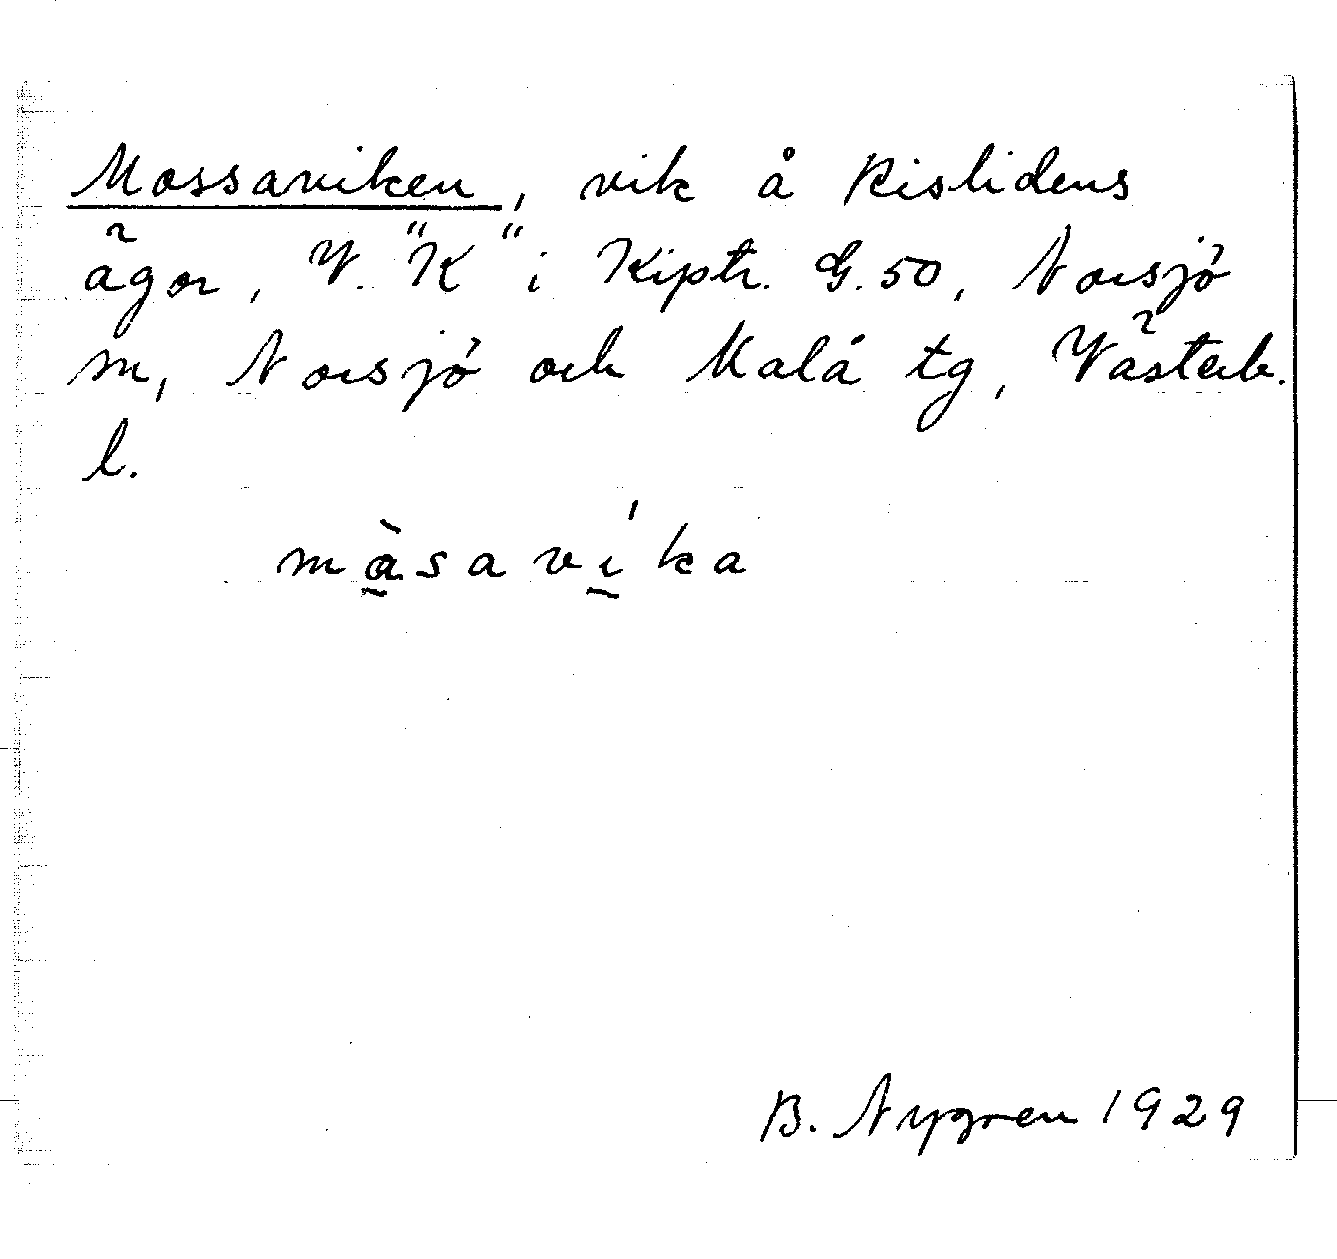 Mossaviken, vik å Rislidens
ägor, V. "K" i Kiptr. G.50, Norsjö
sn, Norsjö och Malå tg, Västerb.
l.
màsavíka
B. Nygren 1929